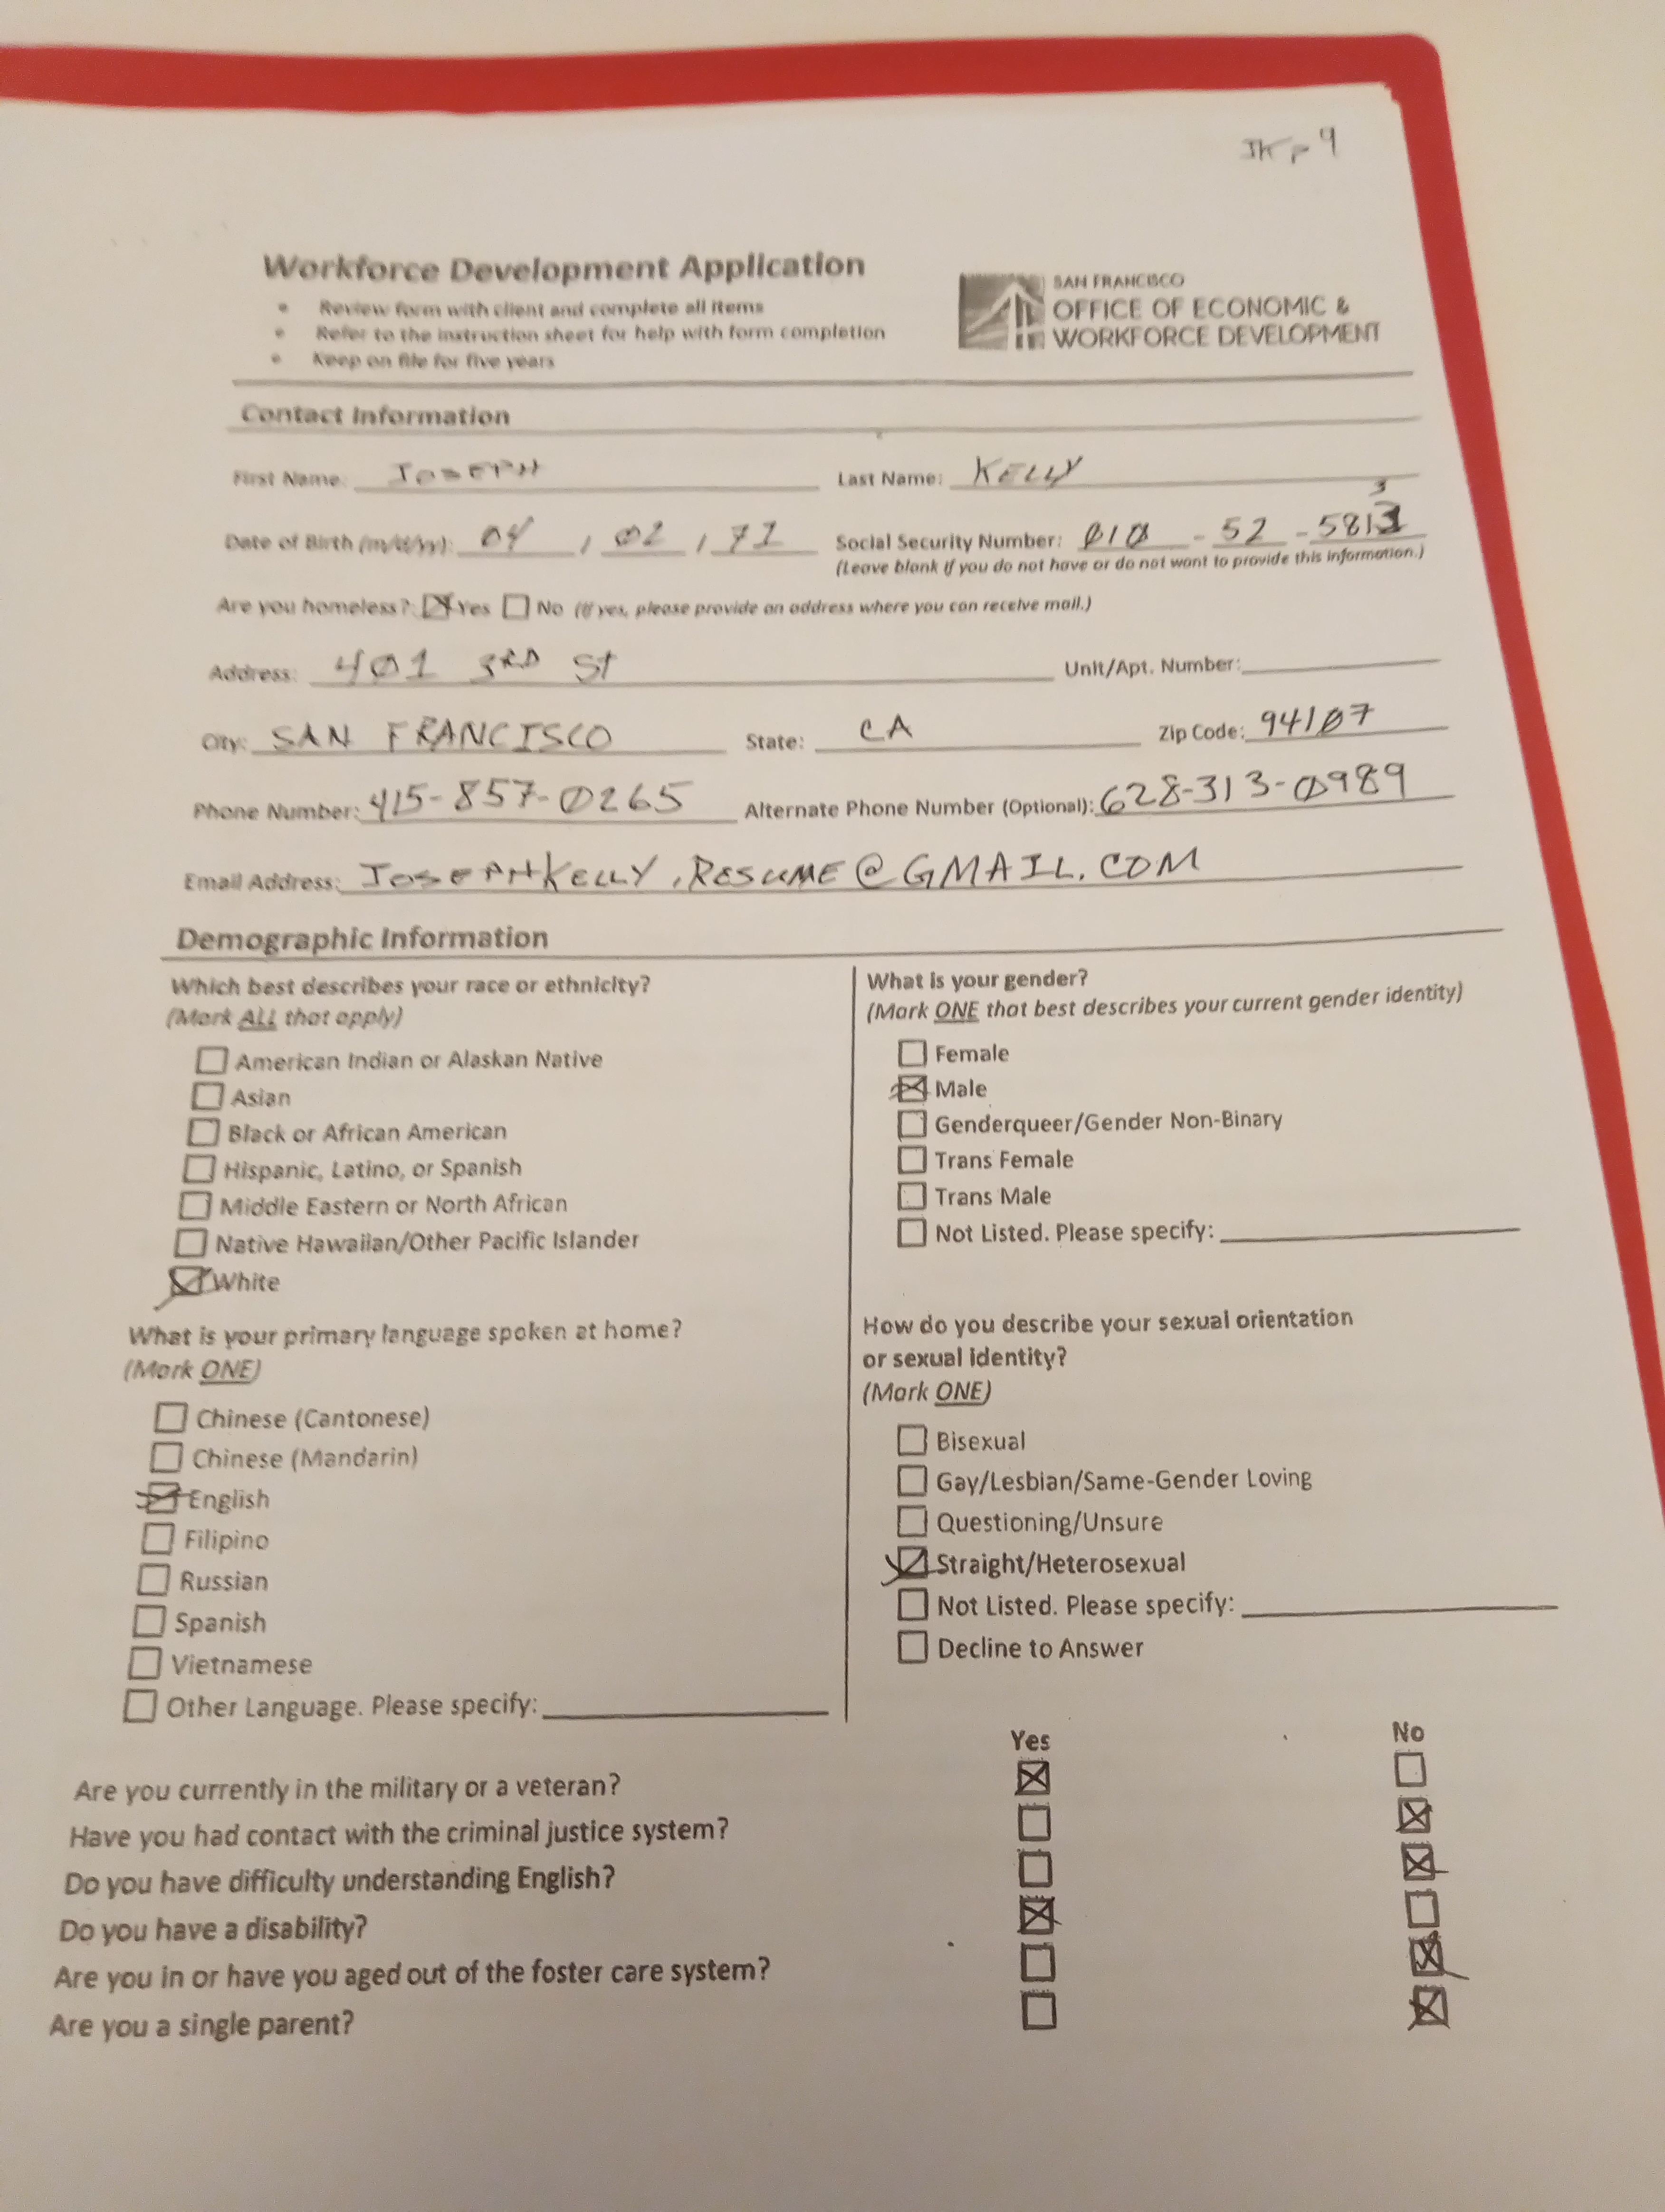 JK p 9
Workforce Development Application
• Review form with client and complete all items
• Refer to the instruction sheet for help with form completion
• Keep on file for five years
SAN FRANCISCO
OFFICE OF ECONOMIC &
WORKFORCE DEVELOPMENT
Contact Information
First Name: JOSEPH Last Name: KELLY
3
Date of Birth (m/d/yy): 04 / 02 / 71 Social Security Number: 010 - 52 - 5813
(Leave blank if you do not have or do not want to provide this information.)
Are you homeless?: ☒ Yes ☐ No (If yes, please provide an address where you can receive mail.)
Address: 401 3RD St Unit/Apt. Number:
City: SAN FRANCISCO State: CA Zip Code: 94107
Phone Number: 415-857-0265 Alternate Phone Number (Optional): 628-313-0989
Email Address: JOSEPHKELLY.RESUME@GMAIL.COM
Demographic Information
Which best describes your race or ethnicity?
(Mark ALL that apply)
☐ American Indian or Alaskan Native
☐ Asian
☐ Black or African American
☐ Hispanic, Latino, or Spanish
☐ Middle Eastern or North African
☐ Native Hawaiian/Other Pacific Islander
☒ White
What is your primary language spoken at home?
(Mark ONE)
☐ Chinese (Cantonese)
☐ Chinese (Mandarin)
☒ English
☐ Filipino
☐ Russian
☐ Spanish
☐ Vietnamese
☐ Other Language. Please specify:
What is your gender?
(Mark ONE that best describes your current gender identity)
☐ Female
☒ Male
☐ Genderqueer/Gender Non-Binary
☐ Trans Female
☐ Trans Male
☐ Not Listed. Please specify:
How do you describe your sexual orientation
or sexual identity?
(Mark ONE)
☐ Bisexual
☐ Gay/Lesbian/Same-Gender Loving
☐ Questioning/Unsure
☒ Straight/Heterosexual
☐ Not Listed. Please specify:
☐ Decline to Answer
Yes No
Are you currently in the military or a veteran? ☒ ☐
Have you had contact with the criminal justice system? ☐ ☒
Do you have difficulty understanding English? ☐ ☒
Do you have a disability? ☒ ☐
Are you in or have you aged out of the foster care system? ☐ ☒
Are you a single parent? ☐ ☒